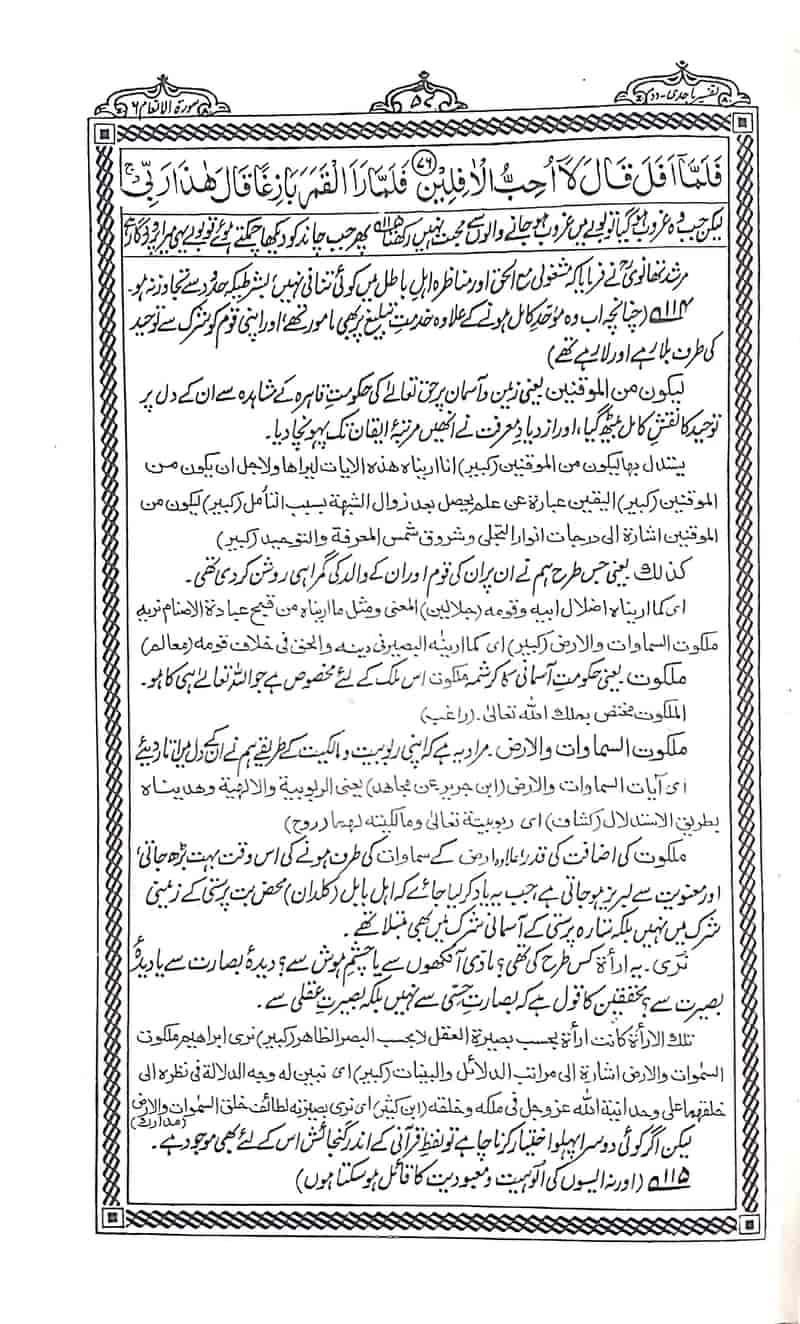 تفسیر ماجدی۔دوم
۵۷
سورۃ الانعام ۶
فَلَمَّآ اَفَلَ قَالَ لَآ اُحِبُّ الْاٰفِلِيْنَ ﴿۷۶﴾ فَلَمَّا رَاَ الْقَمَرَ بَازِغًا قَالَ هٰذَا رَبِّيْ ج
لیکن جب وہ غروب ہوگیا تو بولے میں غروب ہو جانے والوں سے محبت نہیں رکھتا ۱۱۵؎ پھر جب چاند کو دیکھا چمکتے ہوئے تو بولے یہی میرا پروردگار ہے
مرشد تھانویؒ نے فرمایا کہ مشغولی مع الحق اور مناظرہ اہل باطل میں کوئی تنافی نہیں، بشرطیکہ حدود سے تجاوز نہ ہو۔
۱۱۴؎ (چنانچہ اب وہ موحّد کامل ہونے کے علاوہ خدمتِ تبلیغ پر بھی مامور تھے، اور اپنی قوم کو شرک سے توحید
کی طرف بلا رہے اور لا رہے تھے)
لیکون من الموقنین یعنی زمین و آسمان پر حق تعالےٰ کی حکومتِ قاہرہ کے مشاہدہ سے ان کے دل پر
توحید کا نقشِ کامل بیٹھ گیا، اور ازدیادِ معرفت نے انھیں مرتبۂ ایقان تک پہونچا دیا۔
یستدل بها لیکون من الموقنین (کبیر) انا اریناه هذه الایات لیراها ولاجل ان یکون من
الموقنین (کبیر) الیقین عبارة عن علم یحصل بعد زوال الشبهة بسبب التأمل (کبیر) لیکون من
الموقنین اشارة الی درجات انوار التجلی وشروق شمس المعرفة والتوحید (کبیر)
کذلك یعنی جس طرح ہم نے ان پر ان کی قوم اور ان کے والد کی گمراہی روشن کر دی تھی۔
ای کما اریناه اضلال ابیه وقومه (جلالین) المعنی ومثل ما اریناه من قبح عبادة الاصنام نریه
ملکوت السماوات والارض (کبیر) ای کما اریناه البصیر فی دینه والحق فی خلاف قومه (معالم)
ملکوت۔ یعنی حکومتِ آسمانی کا کرشمہ ملکوت اس ملک کے لئے مخصوص ہے جو اللہ تعالےٰ ہی کا ہو۔
الملکوت مختص بملك الله تعالیٰ۔ (راغب)
ملکوت السماوات والارض۔ مراد یہ ہے کہ اپنی ربوبیت و مالکیت کے طریقے ہم نے ان کے دل میں اتار دیئے
ای آیات السماوات والارض (ابن جریر عن مجاهد) یعنی الربوبیة والالهیة وهدیناه
بطریق الاستدلال (کشاف) ای ربوبیته تعالیٰ ومالکیته لهما (روح)
ملکوت کی اضافت کی قدر علاوہ ارض کے سماوات کی طرف ہونے کی اس وقت بہت بڑھ جاتی،
اور معنویت سے لبریز ہو جاتی ہے، جب یہ یاد کر لیا جائے کہ اہل بابل (کلدان) محض بت پرستی کے زمینی
شرک میں نہیں بلکہ ستارہ پرستی کے آسمانی شرک میں بھی مبتلا تھے۔
نُرِی۔ یہ اِراٰۃ کس طرح کی تھی؟ مادّی آنکھوں سے یا چشمِ ہوش سے؟ دیدۂ بصارت سے یا دیدۂ
بصیرت سے؟ محققین کا قول ہے کہ بصارتِ حسّی سے نہیں بلکہ بصیرتِ عقلی سے۔
تلك الارأة کانت ارأة بحسب بصیرة العقل لا بحسب البصر الظاهر (کبیر) نری ابراهیم ملکوت
السمٰوات والارض اشارة الی مراتب الدلائل والبینات (کبیر) ای نبین له وجه الدلالة فی نظره الی
خلقهما علی وحدانیة الله عز وجل فی ملکه وخلقه (ابن کثیر) ای نری بصیرته لطائف خلق السمٰوات والارض
(مدارك)
لیکن اگر کوئی دوسرا پہلو اختیار کرنا چاہے تو لفظِ قرآنی کے اندر گنجائش اس کے لئے بھی موجود ہے۔
۱۱۵؎ (اور نہ ایسوں کی اُلوہیت و معبودیت کا قائل ہو سکتا ہوں)